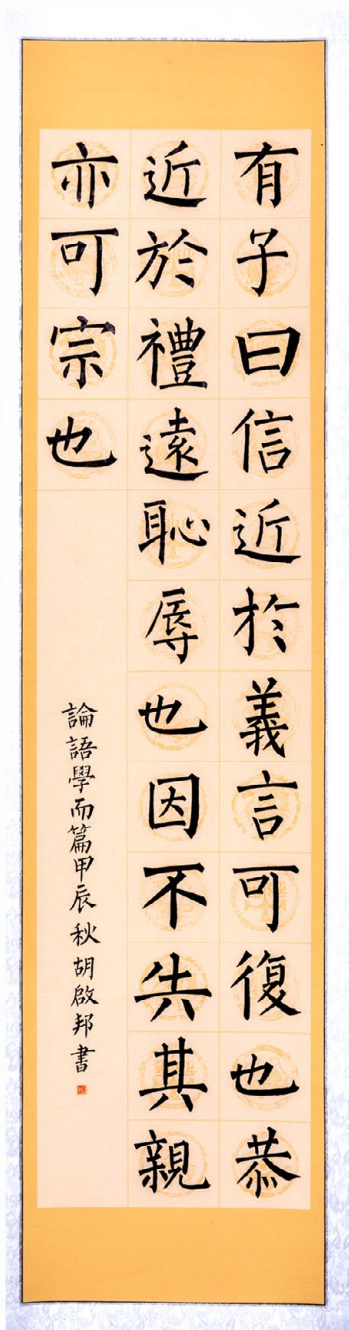 有子曰信近於義言可復也恭
近於禮遠恥辱也因不失其親
亦可宗也
論語學而篇甲辰秋胡啟邦書